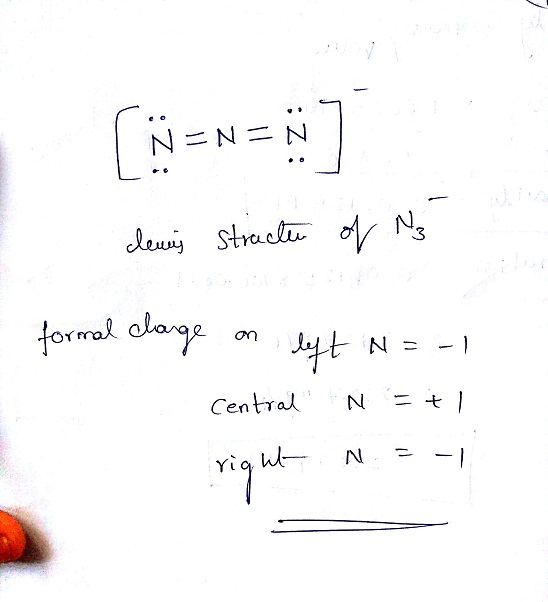 [N̈=N=N̈]⁻
Lewis structu of N₃⁻
formal charge on left N = -1
Central N = +1
right N = -1